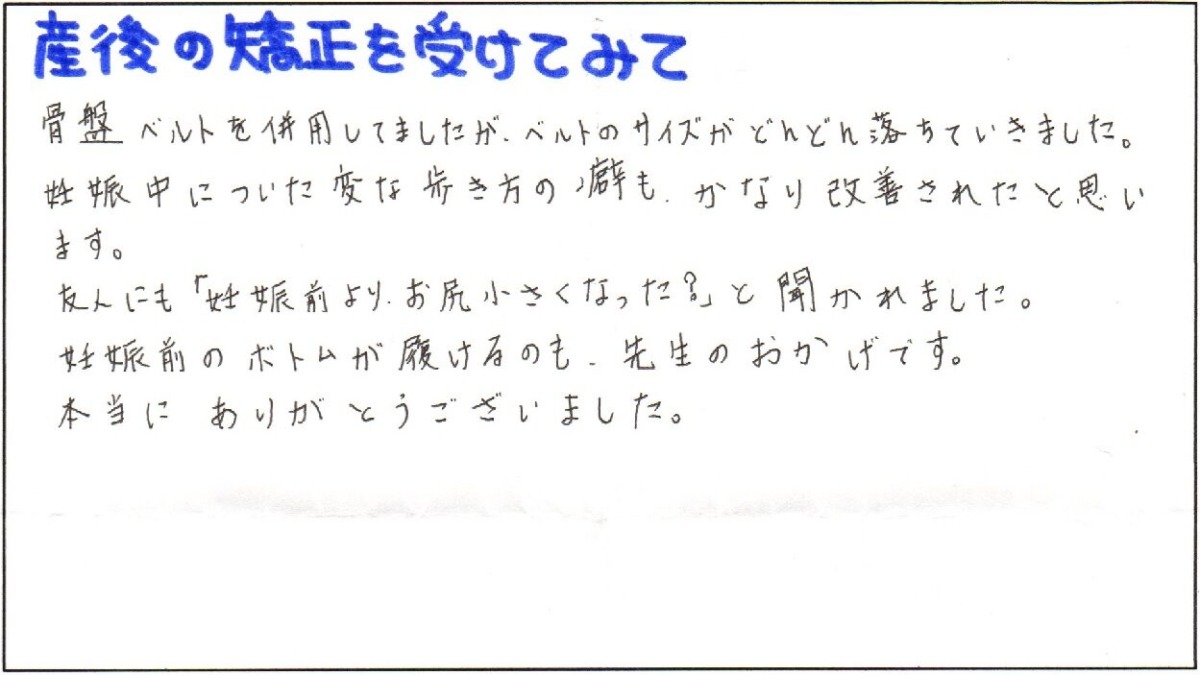 産後の矯正を受けてみて
骨盤ベルトを併用してましたが、ベルトのサイズがどんどん落ちていきました。
妊娠中についた変な歩き方の癖も、かなり改善されたと思い
ます。
友人にも「妊娠前より、お尻小さくなった?」と聞かれました。
妊娠前のボトムが履けるのも、先生のおかげです。
本当に ありがとうございました。